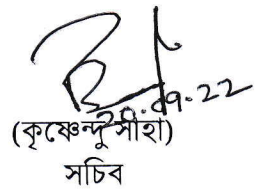 20.09.22
(কৃষ্ণেন্দু সাহা)
সচিব